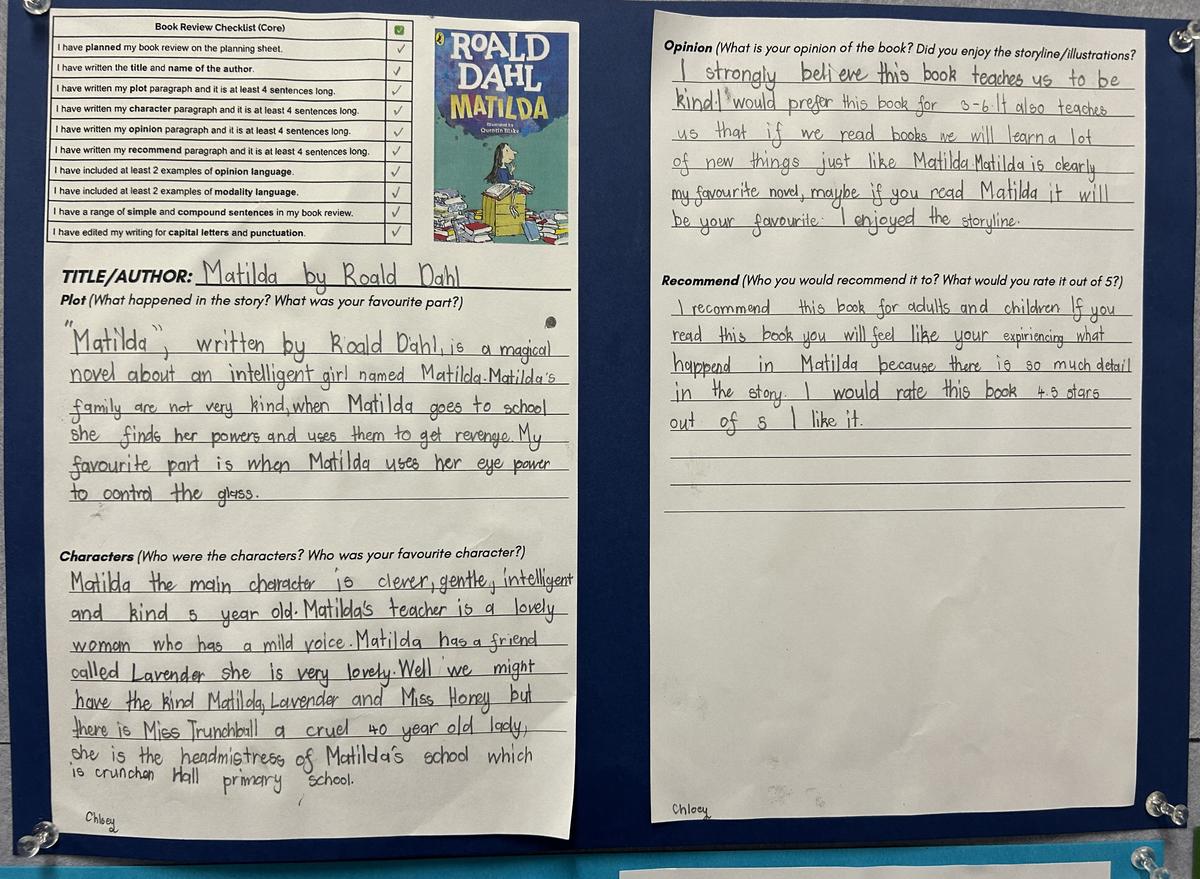 Book Review Checklist (Core)
I have planned my book review on the planning sheet.
I have written the title and name of the author.
I have written my plot paragraph and it is at least 4 sentences long.
I have written my character paragraph and it is at least 4 sentences long.
I have written my opinion paragraph and it is at least 4 sentences long.
I have written my recommend paragraph and it is at least 4 sentences long.
I have included at least 2 examples of opinion language.
I have included at least 2 examples of modality language.
I have a range of simple and compound sentences in my book review.
I have edited my writing for capital letters and punctuation.
ROALD
DAHL
MATILDA
Illustrated by
Quentin Blake
TITLE/AUTHOR: Matilda by Roald Dahl
Plot (What happened in the story? What was your favourite part?)
"Matilda", written by Roald Dahl, is a magical
novel about an intelligent girl named Matilda. Matilda's
family are not very kind, when Matilda goes to school
she finds her powers and uses them to get revenge. My
favourite part is when Matilda uses her eye power
to control the glass.
Characters (Who were the characters? Who was your favourite character?)
Matilda the main character is clever, gentle, intelligent
and kind 5 year old. Matilda's teacher is a lovely
woman who has a mild voice. Matilda has a friend
called Lavender she is very lovely. Well we might
have the kind Matilda, Lavender and Miss Honey but
there is Miss Trunchball a cruel 40 year old lady,
she is the headmistress of Matilda's school which
is crunchen Hall primary school.
Chloey
Opinion (What is your opinion of the book? Did you enjoy the storyline/illustrations?
I strongly believe this book teaches us to be
kind. I would prefer this book for 3-6. It also teaches
us that if we read books we will learn a lot
of new things just like Matilda. Matilda is clearly
my favourite novel, maybe if you read Matilda it will
be your favourite. I enjoyed the storyline.
Recommend (Who you would recommend it to? What would you rate it out of 5?)
I recommend this book for adults and children If you
read this book you will feel like your expiriencing what
happend in Matilda because there is so much detail
in the story. I would rate this book 4.5 stars
out of 5 I like it.
Chloey